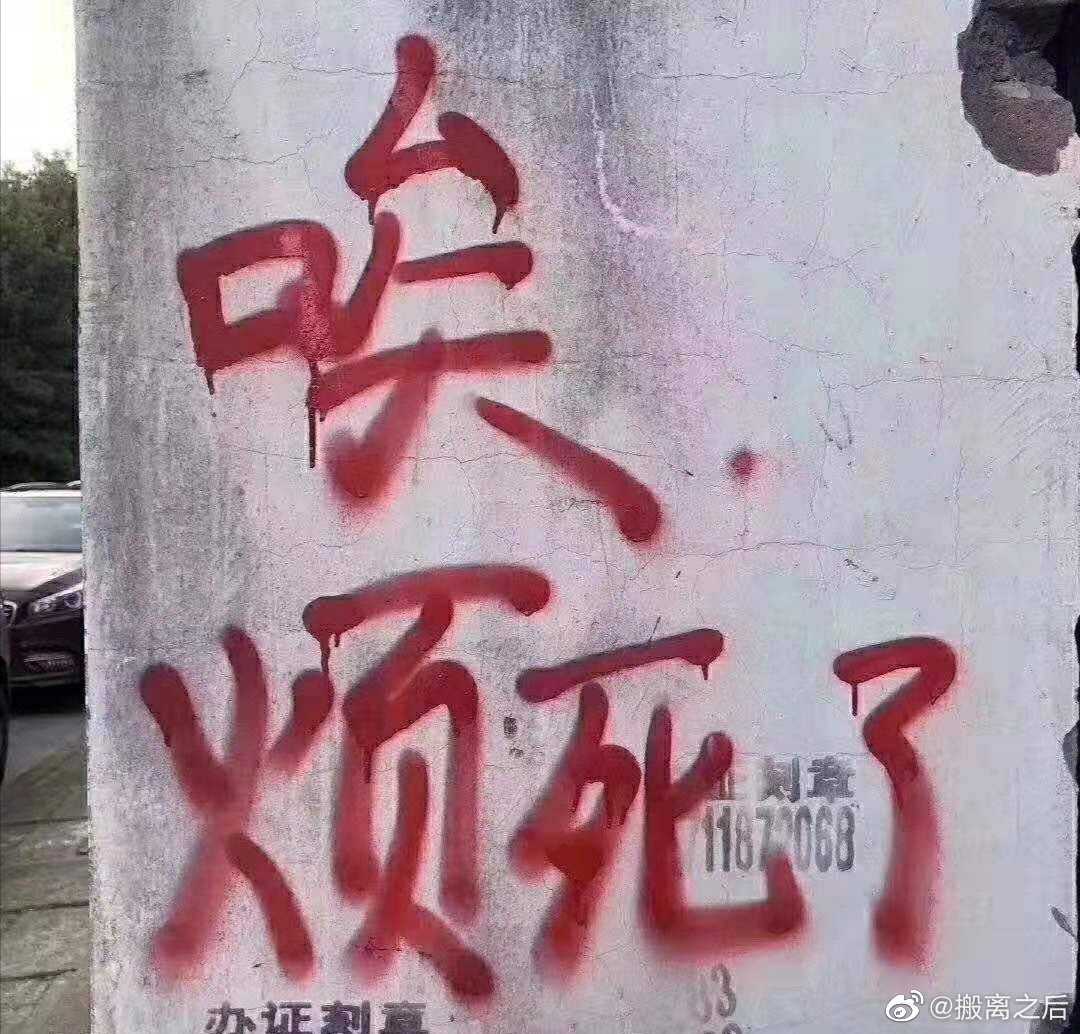 唉
烦死了
证刻章
11872068
办证刻章
83
@搬离之后